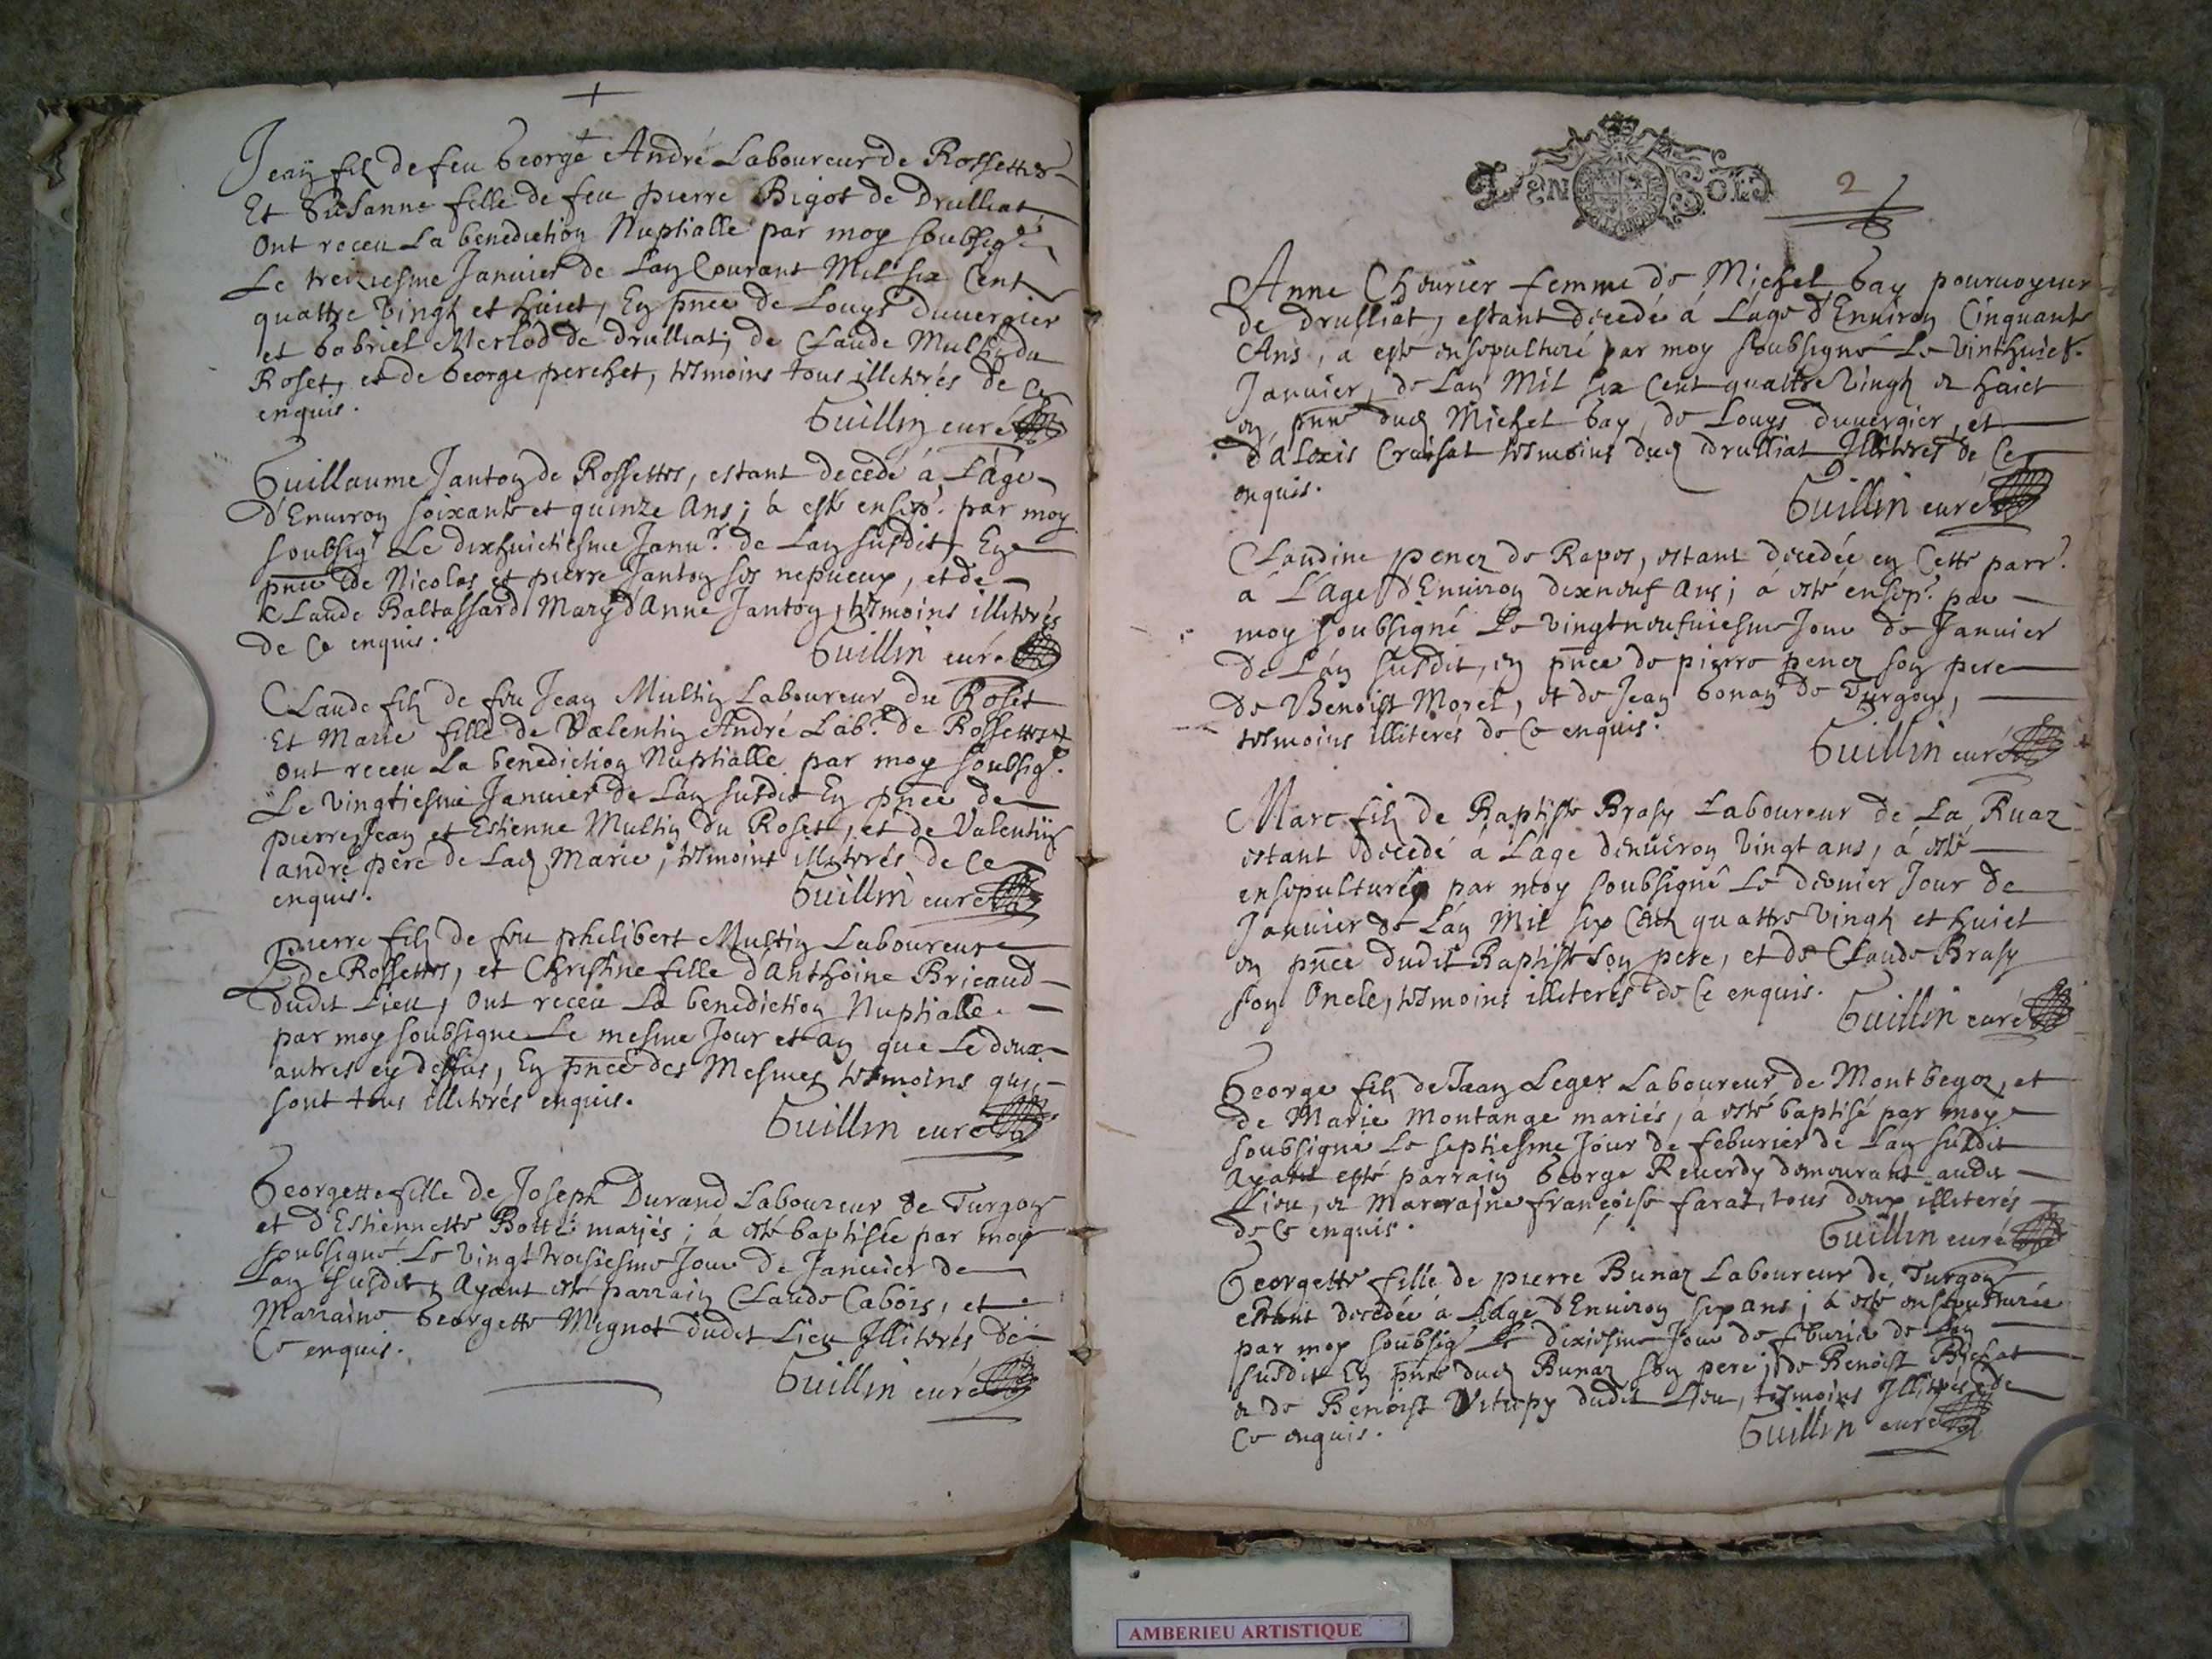 Jean filz de feu George André Laboureur de Rossettes
Et Susanne fille de feu pierre Bigot de Drulliat
Ont receu La benediction Nuptialle par moy soubsigé
Le treiziesme Januier de Lan Courant Mil six Cent
quattre vingtz et huict, En pnce de Louys duuergier
et Gabriel Merlod de drulliat, de Claude Multin du
Roset, et de George perchet, tesmoins tous illiterés de ce
enquis.
Guillin curé
Guillaume Janton de Rossettes, estant decedé á L'age
d'Enuiron soixante et quinze Ans; á esté ensep. par moy
soubsigé Le dixhuictiesme Janur. de Lan susdit, En
pnce de Nicolas et pierre Janton ses nepueux, et de
Claude Baltassard Mary d'Anne Janton, tesmoins illiterés
de Ce enquis.
Guillin curé
Claude filz de feu Jean Multin Laboureur du Roset
Et Marie fille de Valentin André Labr. de Rossettes
Ont receu La benediction Nuptialle par moy soubsigé.
Le vingtiesme Januier de Lan susdit En pnce de
pierre, Jean et Estienne Multin du Roset, et de Valentin
andré pere de Lad. Marie, tesmoins illiterés de Ce
enquis.
Guillin curé
Pierre filz de feu philibert Multin Laboureur
de Rossettes, et Christine fille d'Anthoine Bricaud
dudit Lieu, Ont receu La benediction Nuptialle
par moy soubsigne Le mesme Jour et an que Le deux
autres cy dessus, En pnce des Mesmes tesmoins qui
sont tous illiterés enquis.
Guillin curé
Georgette fille de Joseph Durand Laboureur de Turgon
et d'Estiennette Botté mariés; á esté baptisée par moy
soubsigné Le vingt troisiesme Jour de Januier de
Lan susdit, Ayant esté parrain Claude Cabois, et
Marraine Georgette Mignot dudit Lieu Illiterés de
Ce enquis.
Guillin curé
DEN SOLS
2
Anne Cheurier femme de Michel Gay pouruoyeur
de drulliat, estant decedé á L'age d'Enuiron Cinquante
Ans, á esté ensepulturé par moy soubsigné Le Vinthuict
Januier, de Lan Mil six Cent quattre Vingtz & huict
en pnce dud. Michel Gay, de Louys duuergier, et
d'Alexis Craisat tesmoins dud. drulliat Illiterés de Ce
enquis.
Guillin curé
Claudine penez de Rapes, estant decedée en Cette parr.
á L'Age d'Enuiron dixneuf Ans; á esté ensep. par
moy soubsigné Le vingtneufuiesme Jour de Januier
de L'an susdit, en pnce de pierre penez son pere
de Benoist Morel, et de Jean bonan de Turgon,
tesmoins illiterés de Ce enquis.
Guillin curé
Marc filz de Baptiste Brasy Laboureur de La Ruaz
estant decedé á L'age d'enuiron Vingt ans, á esté
ensepulturé par moy soubsigné Le dernier Jour de
Januier de L'an Mil six Cent quattre Vingtz et huict
en pnce dudit Baptiste son pere, et de Claude Brasy
son Oncle, tesmoins illiterés de Ce enquis.
Guillin curé
George filz de Jean Leger Laboureur de Montbegoz, et
de Marie Montange mariés, á esté baptisé par moy
soubsigné Le septiesme Jour de feburier de Lan susdit
ayant esté parrain George Reuerdy demeurant audit
Lieu, & Marraine francoise farat, tous deux illiterés
de Ce enquis.
Guillin curé
Georgette fille de pierre Bunaz Laboureur de Turgon
estant decedée á L'age d'Enuiron six ans; á esté ensepulturée
par moy soubsigé Le dixiesme Jour de feburier de Lan
susdit En pnce dud. Bunaz son pere, de Benoist Bichat
& de Benoist dudit Lieu, tesmoins Illiterés de
Ce enquis.
Guillin curé
AMBERIEU ARTISTIQUE